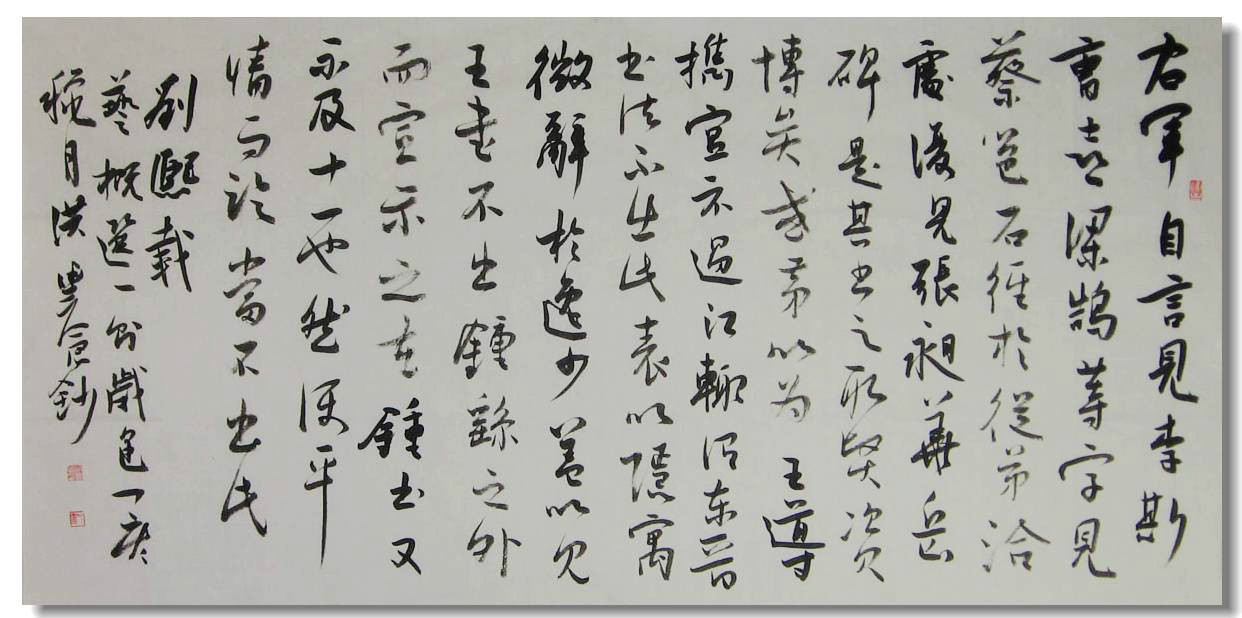 右軍自言見李斯
曹喜梁鵠等字見
蔡邕石經於從弟洽
處復見張昶華岳
碑是其書之取資
博矣或第以為王導
攜宣示過江輒謂東晉
書法不出此表以隱寓
微辭於逸少蓋以見
王書不出鍾繇之外
而宣示之在鍾書又
不及十一也然使平
情而論當不出此
劉熙載
藝概選一則歲
月洪鈔